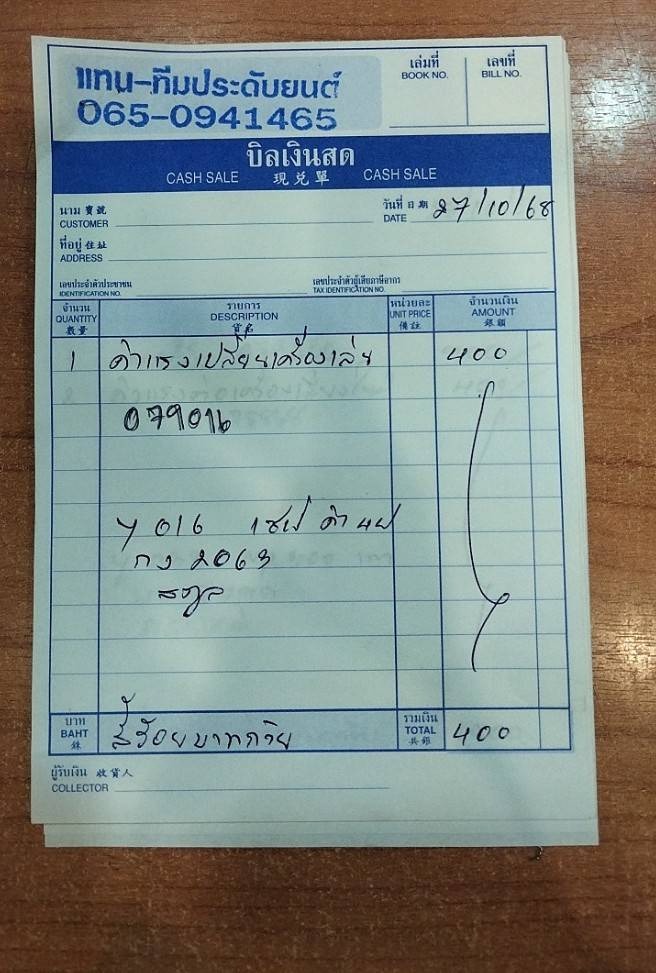 แทน-ทีมประดับยนต์
065-0941465
เล่มที่
BOOK NO.
เลขที่
BILL NO.
บิลเงินสด
CASH SALE 現兑單 CASH SALE
นาม 寶號
CUSTOMER
วันที่ 日期 27/10/68
DATE
ที่อยู่ 住址
ADDRESS
เลขประจำตัวประชาชน
IDENTIFICATION NO.
เลขประจำตัวผู้เสียภาษีอากร
TAX IDENTIFICATION NO.
จำนวน
QUANTITY
數量
รายการ
DESCRIPTION
貨名
หน่วยละ
UNIT PRICE
備註
จำนวนเงิน
AMOUNT
銀額
1 ค่าแรงเปลี่ยนเครื่องเล่น 400
079016
016
กง 2063
บาท
BAHT
銖
สี่ร้อยบาทถ้วน
รวมเงิน
TOTAL
共銀
400
ผู้รับเงิน 收貨人
COLLECTOR